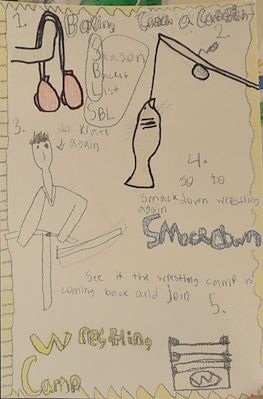 1. Boxing
Season
Bucket
List
SBL
Catch a Catfish
2.
3. do Kratt
again
4.
go to
smackdown wrestling
again
Smackdown
See if the wrestling camp is
coming back and join
5.
Wrestling
Camp
W